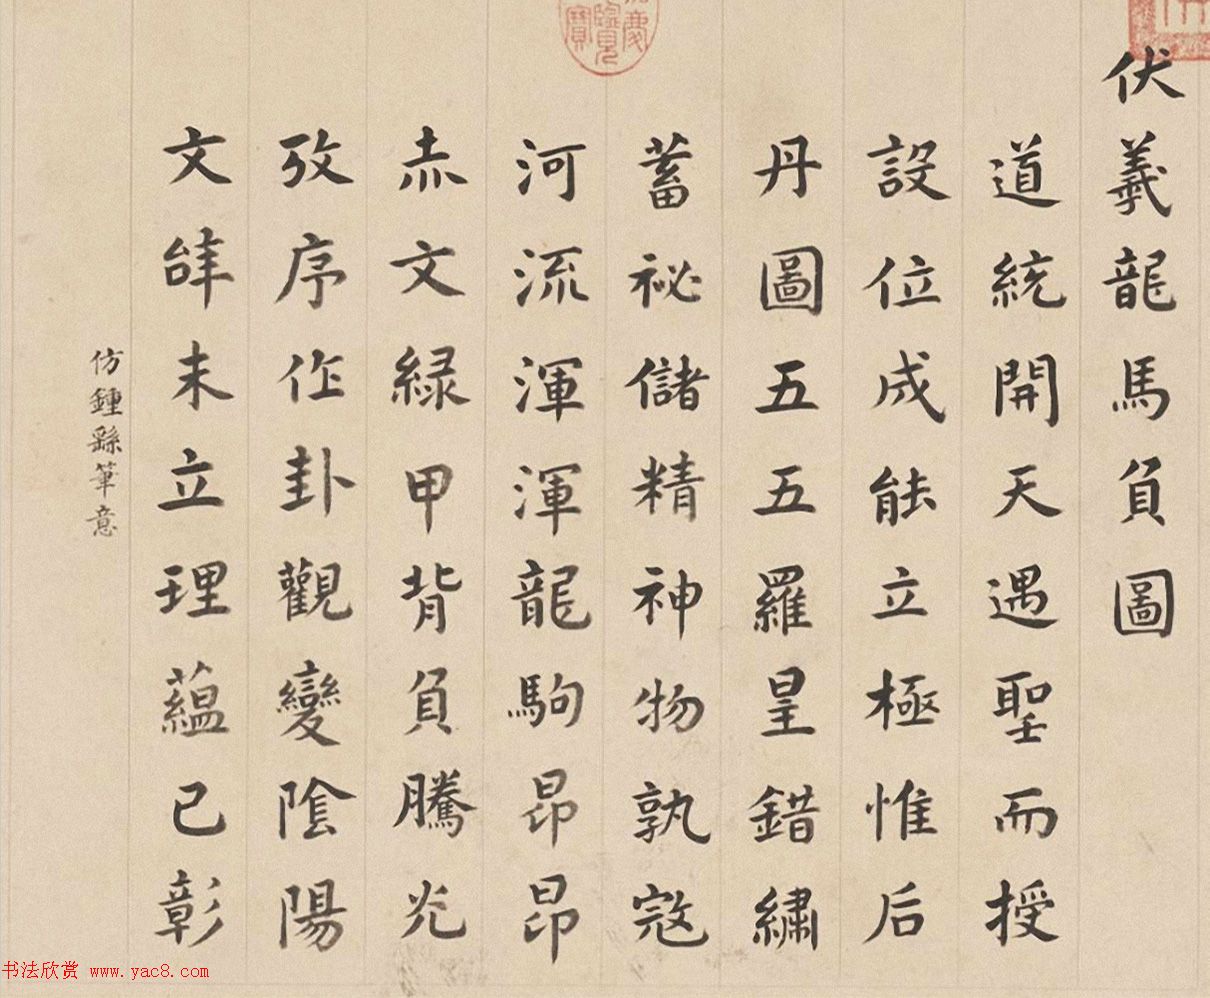 慶覽寶
伏羲龍馬負圖
道統開天遇聖而授
設位成能立極惟后
丹圖五五羅皇錯繡
蓄祕儲精神物孰寇
河流渾渾龍駒昂昂
赤文緑甲背負騰光
攷序作卦觀變陰陽
文辝未立理蘊已彰
仿鍾繇筆意
书法欣赏 www.yac8.com